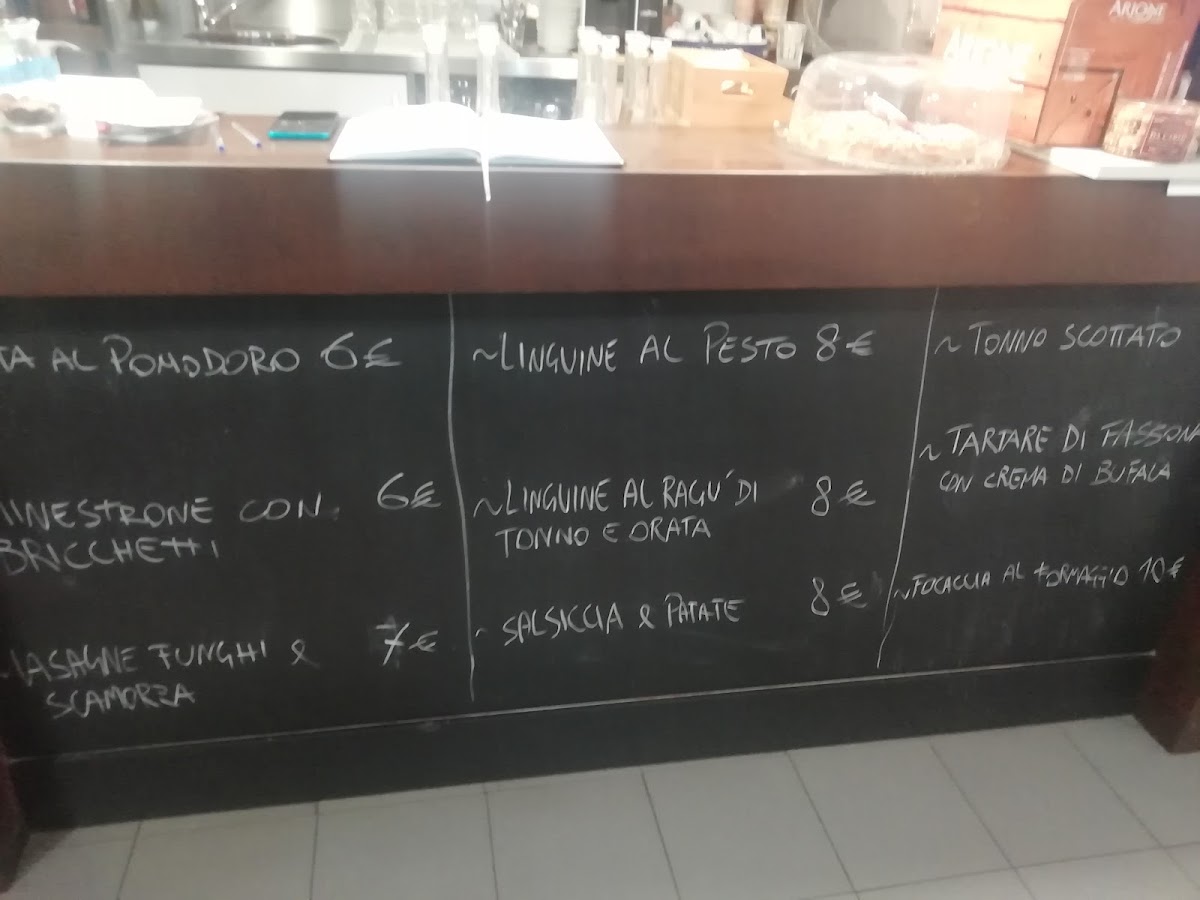 TA AL POMODORO 6€
MINESTRONE CON 6€
BRICCHETTI
~LASAGNE FUNGHI & 7€
SCAMORZA
~LINGUINE AL PESTO 8€
~LINGUINE AL RAGU' DI 8€
TONNO E ORATA
~ SALSICCIA & PATATE 8€
~ TONNO SCOTTATO
~ TARTARE DI FASSONA
CON CREMA DI BUFALA
~FOCACCIA AL FORMAGGIO 10€
ARIONE
ARIONE